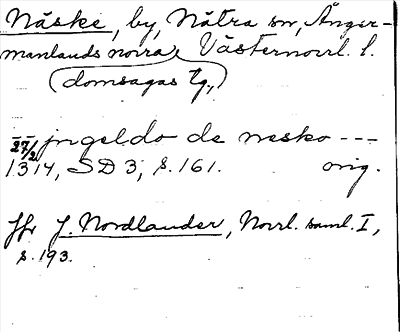 Näske, by, Nätra sn, Ånger-
manlands norra, Västernorrl. l.
(domsagas tg.,
-- jngeldo de nesko ---
27/2 1314, SD 3, s. 161. orig.
Jfr J. Nordlander, Norrl. saml. I,
s. 193.